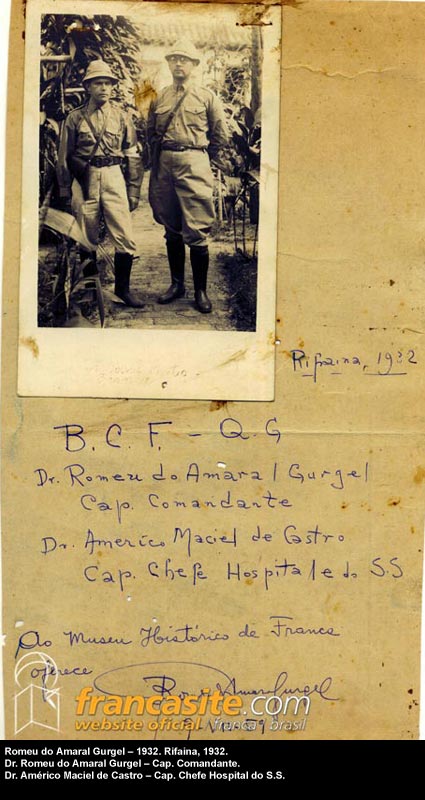 Rifaina, 1932
B. C. F. - Q. G
Dr. Romeu do Amaral Gurgel
Cap. Comandante
Dr. Americo Maciel de Castro
Cap. Chefe Hospital e do S.S
Ao Museu Histórico de Franca
oferece
Romeu Amaral Gurgel
francasite.com
website oficial franca brasil
Romeu do Amaral Gurgel – 1932. Rifaina, 1932.
Dr. Romeu do Amaral Gurgel – Cap. Comandante.
Dr. Américo Maciel de Castro – Cap. Chefe Hospital do S.S.